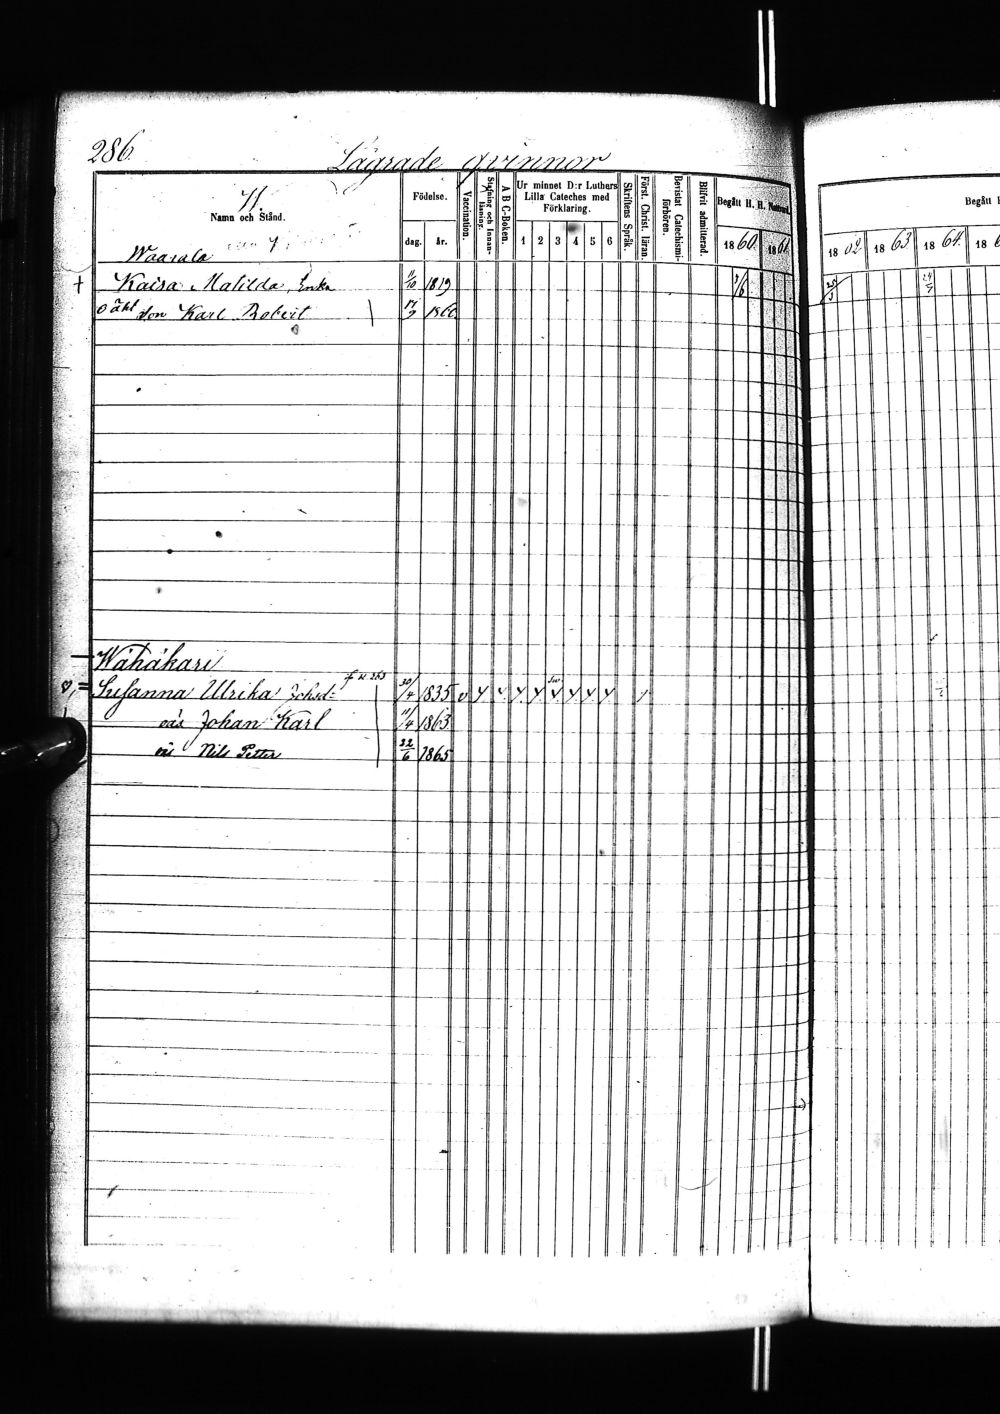 286.
Lägrade qvinnor
W.
Namn och Stånd.
Födelse.
dag. år.
Vaccination.
Stafning och Innan-läsning.
A B C-Boken.
Ur minnet D:r Luthers
Lilla Cateches med
Förklaring.
1 2 3 4 5 6
Skriftens Språk.
Först. Christ. läran.
Bevistat Catechismi-förhören.
Blifvit admitterad.
Begått H. H. Nattvard.
1860. 1861
1862 1863 1864. 18
Begått H
Waarala
† Kaisa Matilda, Enka 1/10 1819 7/6 25/3 24/7
oäkt son Karl Robert 17/9 1860
Wähäkari
f n 253
Susanna Ulrika Johsd: 30/4 1835
oäs Johan Karl 11/4 1863
oäs Nils Petter 22/6 1865